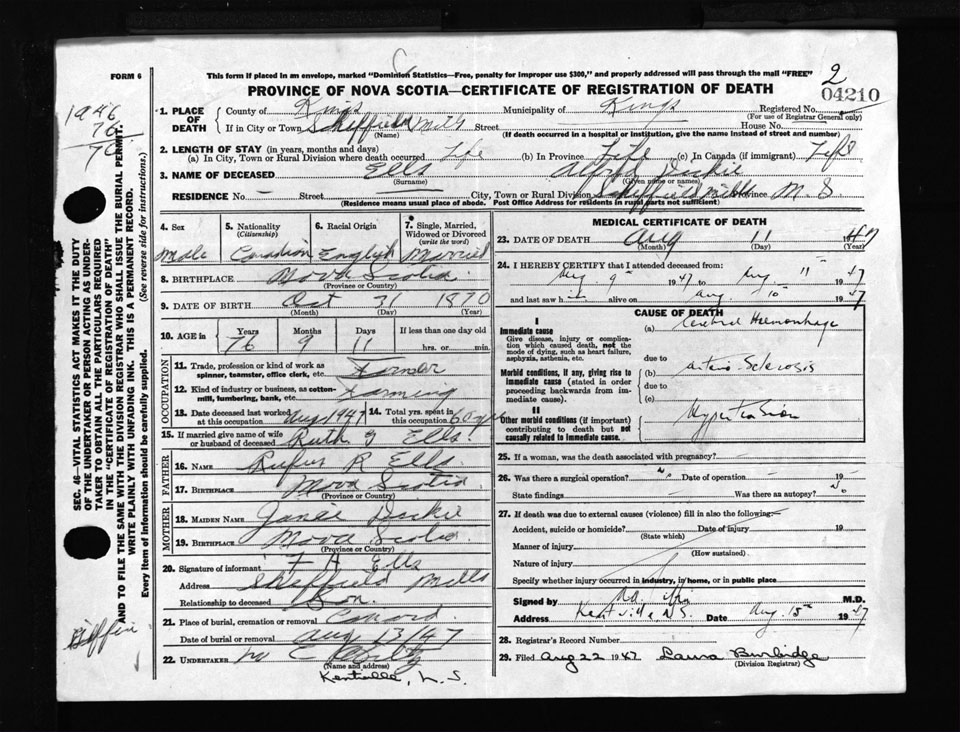 FORM 6
This form if placed in an envelope, marked "Dominion Statistics—Free, penalty for improper use $300," and properly addressed will pass through the mail "FREE"
2
04210
PROVINCE OF NOVA SCOTIA—CERTIFICATE OF REGISTRATION OF DEATH
1946
76
70
1. PLACE OF DEATH
County of Kings Municipality of Kings Registered No.
(For use of Registrar General only)
If in City or Town Sheffield Mills Street House No.
(Name) (If death occurred in a hospital or institution, give the name instead of street and number)
2. LENGTH OF STAY (in years, months and days)
(a) In City, Town or Rural Division where death occurred Life (b) In Province Life (c) In Canada (if immigrant) Life
3. NAME OF DECEASED Ells Alfred Dickie
(Surname) (Given name or names)
RESIDENCE No. — Street City, Town or Rural Division Sheffield Mills Province N.S
(Residence means usual place of abode. Post Office Address for residents in rural parts not sufficient)
SEC. 46—VITAL STATISTICS ACT MAKES IT THE DUTY
OF THE UNDERTAKER OR PERSON ACTING AS UNDER-
TAKER TO OBTAIN ALL THE PARTICULARS REQUIRED
IN THE "CERTIFICATE OF REGISTRATION OF DEATH"
AND TO FILE THE SAME WITH THE DIVISION REGISTRAR WHO SHALL ISSUE THE BURIAL PERMIT.
WRITE PLAINLY WITH UNFADING INK. THIS IS A PERMANENT RECORD.
Every item of information should be carefully supplied. (See reverse side for instructions.)
4. Sex
Male
5. Nationality
(Citizenship)
Canadian
6. Racial Origin
English
7. Single, Married, Widowed or Divorced
(write the word)
Married
8. BIRTHPLACE Nova Scotia
(Province or Country)
9. DATE OF BIRTH Oct 31 1870
(Month) (Day) (Year)
10. AGE in
Years Months Days If less than one day old
76 9 11 hrs. or min.
OCCUPATION
11. Trade, profession or kind of work as
spinner, teamster, office clerk, etc. Farmer
12. Kind of industry or business, as cotton-
mill, lumbering, bank, etc. Farming
13. Date deceased last worked
at this occupation Aug 1947
14. Total yrs. spent in
this occupation 60 yrs
15. If married give name of wife
or husband of deceased Ruth J Ells
FATHER
16. NAME Rufus R Ells
17. BIRTHPLACE Nova Scotia
(Province or Country)
MOTHER
18. MAIDEN NAME Janie Dickie
19. BIRTHPLACE Nova Scotia
(Province or Country)
20. Signature of informant F H Ells
Address Sheffield Mills
Relationship to deceased Son.
21. Place of burial, cremation or removal
Date of burial or removal Aug 13/47
22. UNDERTAKER
(Name and address)
Kentville, N.S.
MEDICAL CERTIFICATE OF DEATH
23. DATE OF DEATH Aug 11 1947
(Month) (Day) (Year)
24. I HEREBY CERTIFY that I attended deceased from:
Aug. 9th 1947 to Aug. 11th 1947
and last saw him alive on Aug 10th 1947
CAUSE OF DEATH
I
Immediate cause
Give disease, injury or complica-
tion which caused death, not the
mode of dying, such as heart failure,
asphyxia, asthenia, etc.
(a) Cerebral Haemorrhage
due to
Morbid conditions, if any, giving rise to
immediate cause (stated in order
proceeding backwards from immediate
cause).
(b) Arterio-Sclerosis
due to
(c)
II
Other morbid conditions (if important)
contributing to death but not
causally related to immediate cause.
Hypertension
25. If a woman, was the death associated with pregnancy?
26. Was there a surgical operation? Date of operation 19
State findings Was there an autopsy? No
27. If death was due to external causes (violence) fill in also the following:—
Accident, suicide or homicide? Date of injury 19
(State which)
Manner of injury
(How sustained)
Nature of injury
Specify whether injury occurred in industry, in home, or in public place
Signed by M.D.
Address Kentville N.S. Date Aug. 15th 1947
28. Registrar's Record Number
29. Filed Aug 22 1947 Laura Burbidge
(Division Registrar)